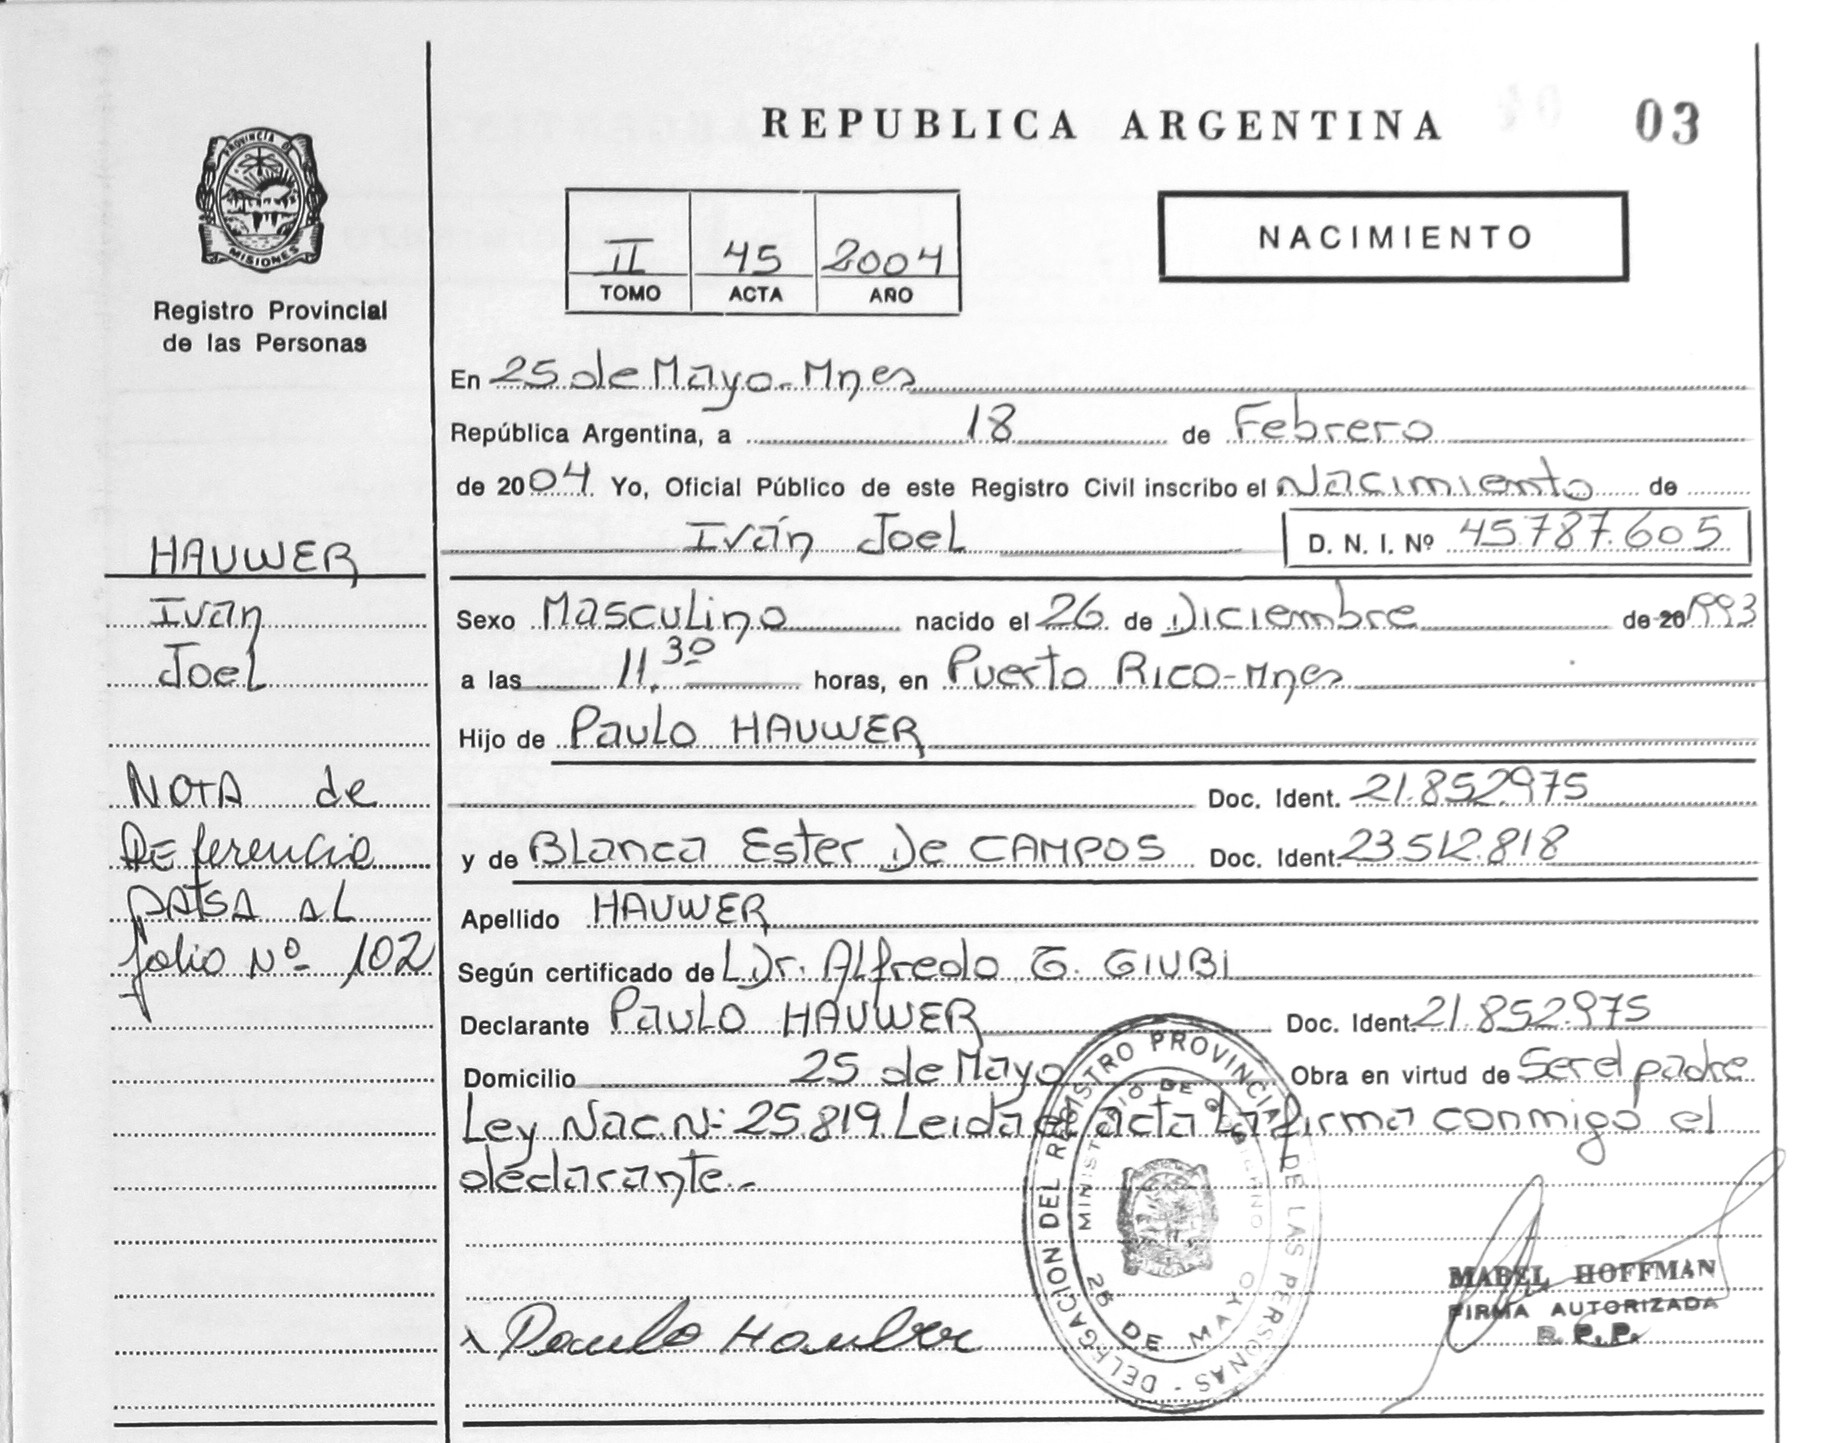 REPUBLICA ARGENTINA
03
PROVINCIA DE
MISIONES
Registro Provincial
de las Personas
II 45 2004
TOMO ACTA AÑO
NACIMIENTO
En 25 de Mayo-Mnes
República Argentina, a 18 de Febrero
de 2004. Yo, Oficial Público de este Registro Civil inscribo el Nacimiento de
Iván Joel
D. N. I. Nº 45.787.605
HAUWER
Iván
Joel
Sexo Masculino nacido el 26 de Diciembre de 20 1993
a las 11.30 horas, en Puerto Rico-Mnes
Hijo de Paulo HAUWER
Doc. Ident. 21.852.975
y de Blanca Ester De CAMPOS Doc. Ident. 23.512.818
Apellido HAUWER
Según certificado de Dr. Alfredo G. GIUBI
Declarante Paulo HAUWER Doc. Ident. 21.852.975
Domicilio 25 de Mayo Obra en virtud de Ser el padre
Ley Nac. Nº 25.819 Leida el acta La firma conmigo el
declarante.-
NOTA de
REferencia
PATSA AL
folio Nº 102
DELEGACION DEL REGISTRO PROVINCIAL DE LAS PERSONAS -
MINISTERIO DE GOBIERNO
25 DE MAYO
x Paulo Hauwer
MABEL HOFFMAN
FIRMA AUTORIZADA
R. P. P.